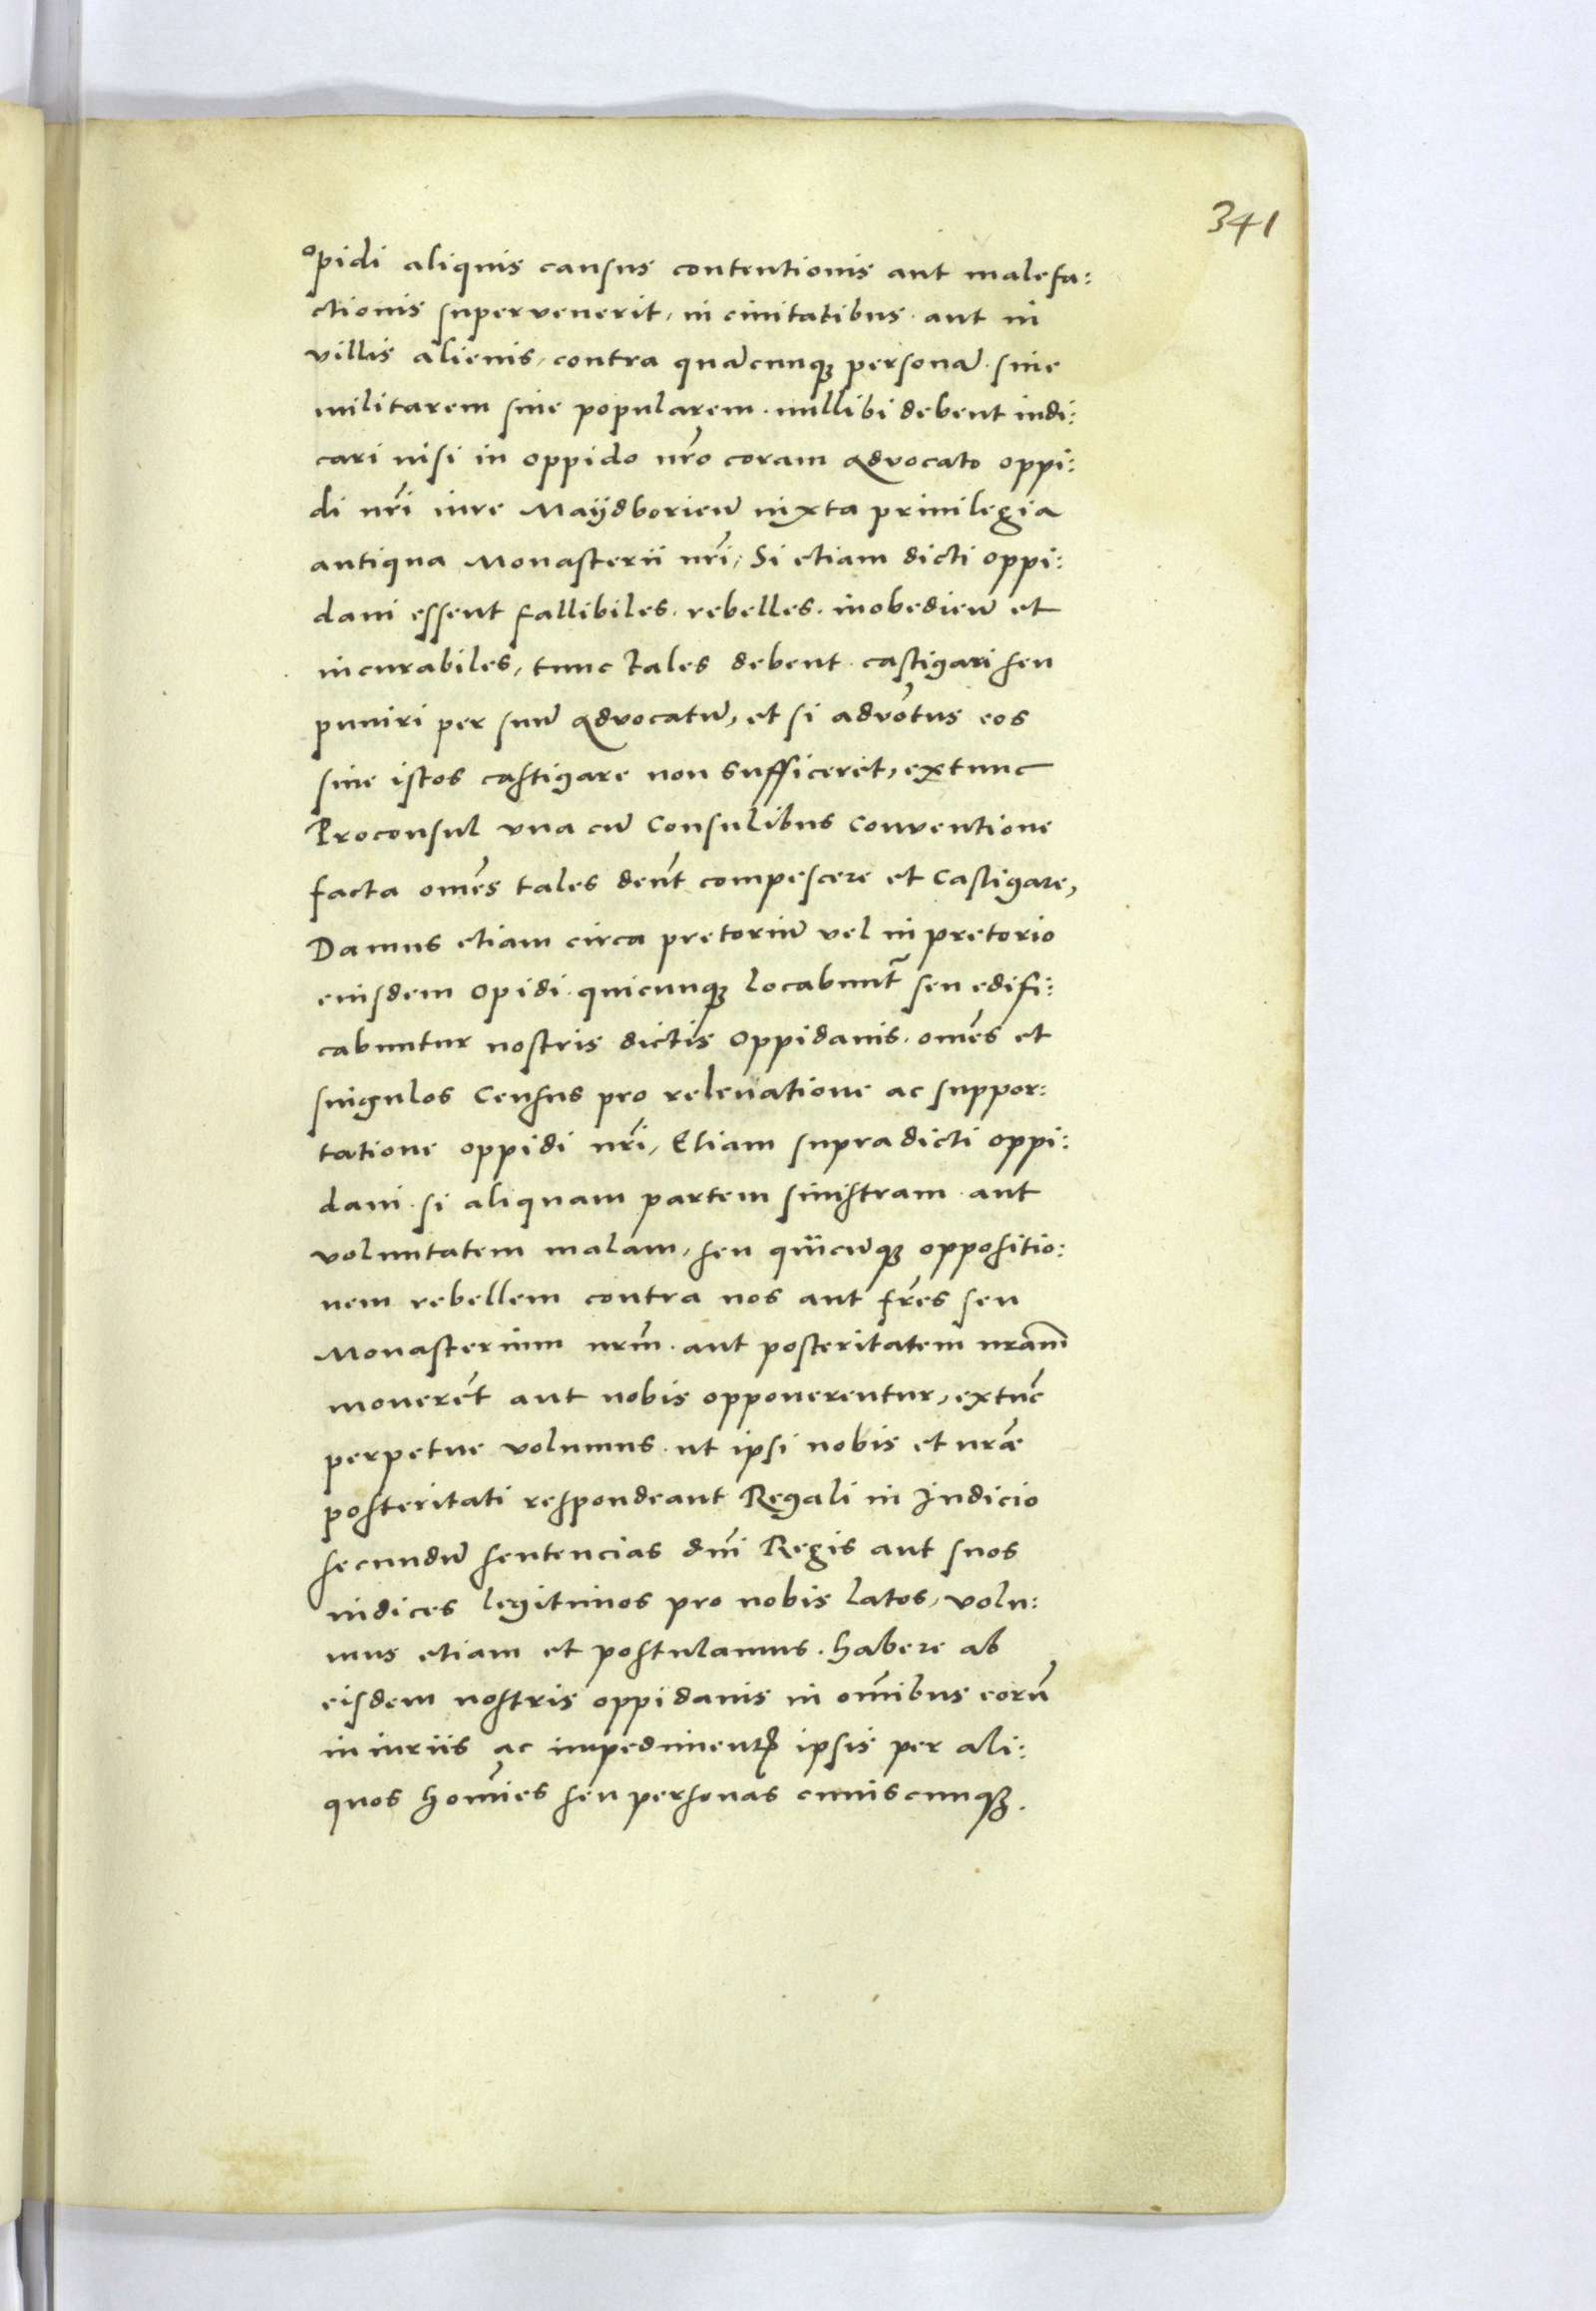 341
opidi aliquis causus contentionis aut malefa:
ctionis supervenerit, in ciuitatibus. aut in
villis alienis, contra quācunqꝫ personā. siue
militarem siue popularem. nullibi debent iudi:
cari nisi in oppido nr̄o coram Advocato oppi:
di nr̄i iure Maÿdborień iuxta priuilegia
antiqua Monasterii nr̄i, Si etiam dicti oppi:
dani essent fallibiles. rebelles. inobedień et
incurabiles, tunc tales debent. castigari seu
puniri per suū Advocatū, et si advōtus eos
siue istos castigare non sufficeret, extunc
Proconsul vna cū Consulibus Conventione
facta om̄es tales den̄t compescere et Castigare,
Damus etiam circa pretoriū vel in pretorio
eiusdem Opidi. quicunqꝫ locabunt̄ seu edifi:
cabuntur nostris dictis Oppidanis. om̄es et
singulos Census pro releuatione ac suppor:
tatione oppidi nr̄i, Etiam supradicti oppi:
dani. si aliquam partem sinistram. aut
voluntatem malam, seu quācūqꝫ oppositio:
nem rebellem contra nos aut fr̄es seu
Monasterium nr̄m. aut posteritatem nr̄am
mouerēt aut nobis opponerentur, extūc
perpetue volumus. ut ipsi nobis et nr̄æ
posteritati respondeant Regali in Iudicio
secundū sentencias dn̄i Regis aut suos
iudices legitimos pro nobis latos, volu:
mus etiam et postulamus. habere ab
eisdem nostris oppidanis in om̄ibus eorū
iniuriis ac impedimentꝭ ipsis per ali:
quos homīes seu personas cuiuscunqꝫ.